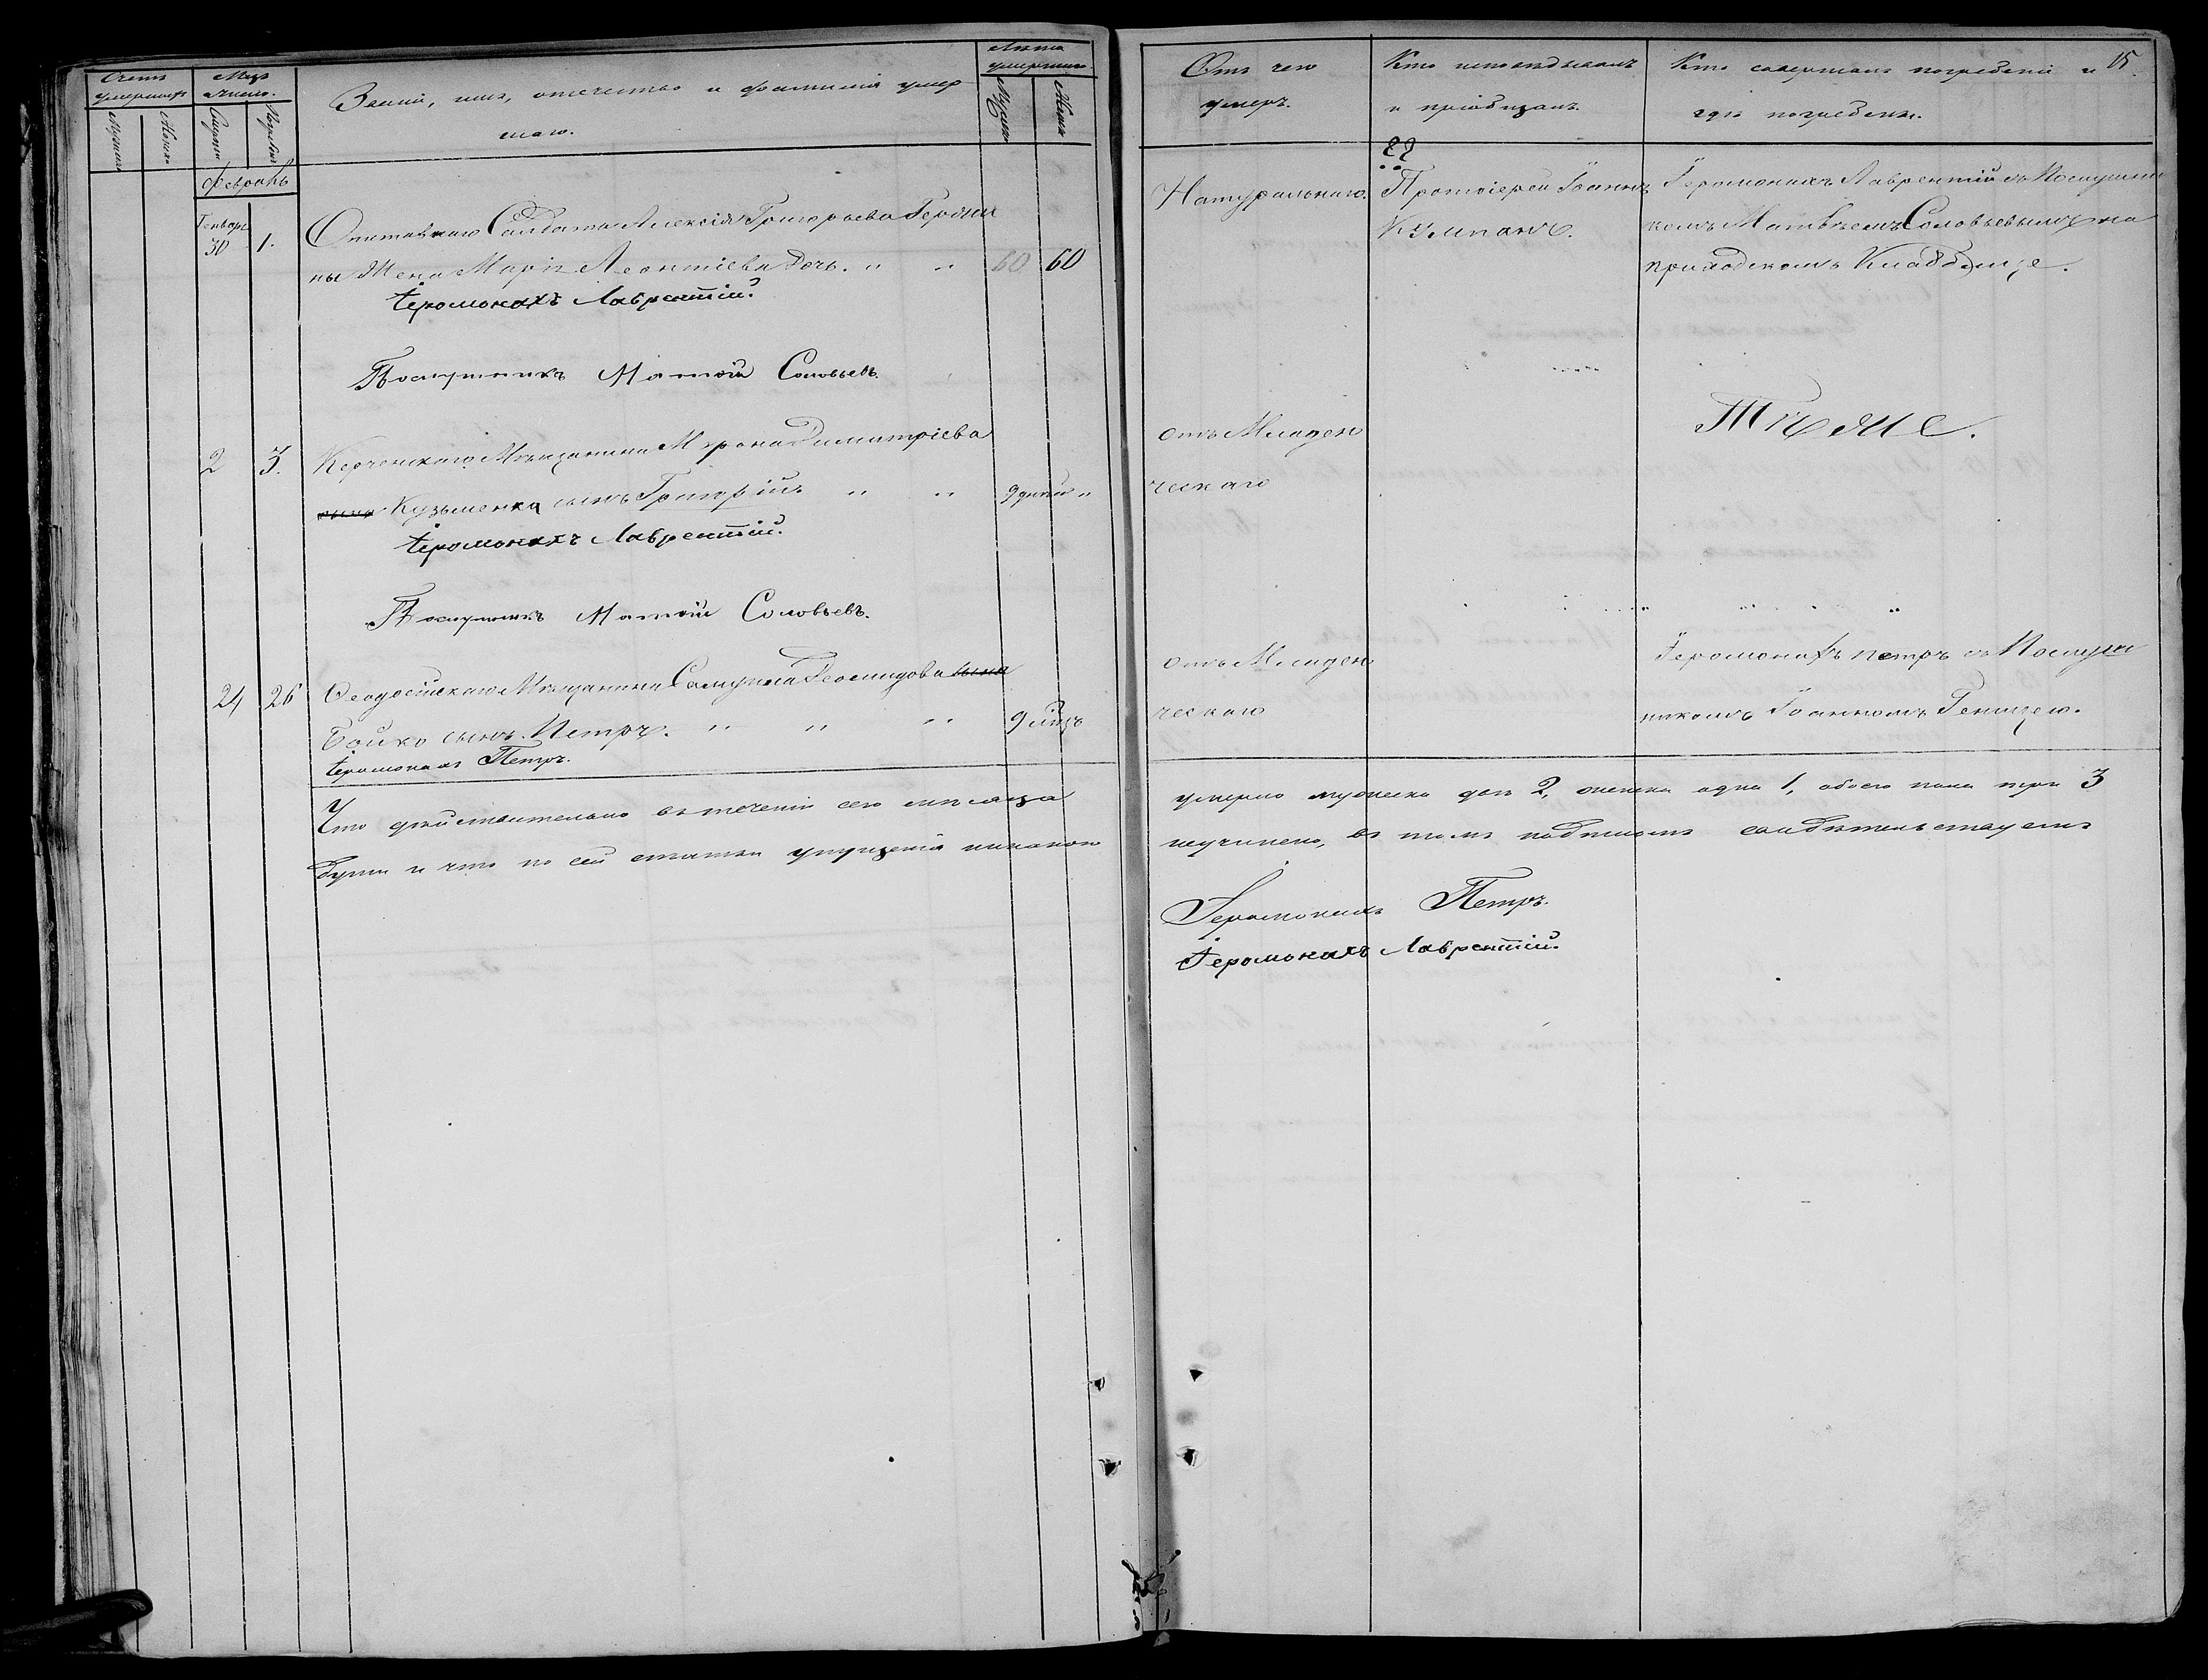 Счетъ умершихъ
Мужеска
Женска
Мцъ и число.
Смерти
Погребенія
Званіе, имя, отечество и фамилія умер
шаго.
Лѣта умершаго
Мужеска
Женска
Февраль
Генваря
30
1.
Отставнаго Салдата Алексія Григорьева
ны Жена Марія Леонтіева Дочь. " "
60
60
Іеромонахъ Лаврентій.
Послушникъ Матѳій Соловьевъ.
2
3.
Керченскаго Мѣщанина Мирона Димитріева
сына Кузьменка сынъ Григорій. " "
9 дней "
Іеромонахъ Лаврентій.
Послушникъ Матѳій Соловьевъ.
24
26
Ѳеодосійскаго Мѣщанина Самуила сына
Бойко сынъ Петръ. " " "
9 мцъ
Іеромонахъ Петръ.
Что дѣйствительно въ теченіи сего мѣсяца
и что по сей статьи упущенія никакого
15.
Отъ чего
умеръ.
Кто исповѣдывалъ
и пріобщалъ.
Кто совершалъ погребеніе и
гдѣ погребены.
Натуральнаго.
Протоіерей Іоаннъ
Кумпанъ.
Іеромонахъ Лаврентій съ Послушни
комъ Матвѣемъ Соловьевымъ на
приходскомъ Кладбище.
отъ Младен
ческаго
Тѣже.
отъ Младен
ческаго
Іеромонахъ Петръ съ Послуш
никомъ Іоанномъ
умерло мужеска два 2, женска одна 1, обоего пола три 3
неучинено, въ томъ подписомъ свидѣтельствуемъ
Іеромонахъ Петръ.
Іеромонахъ Лаврентій.